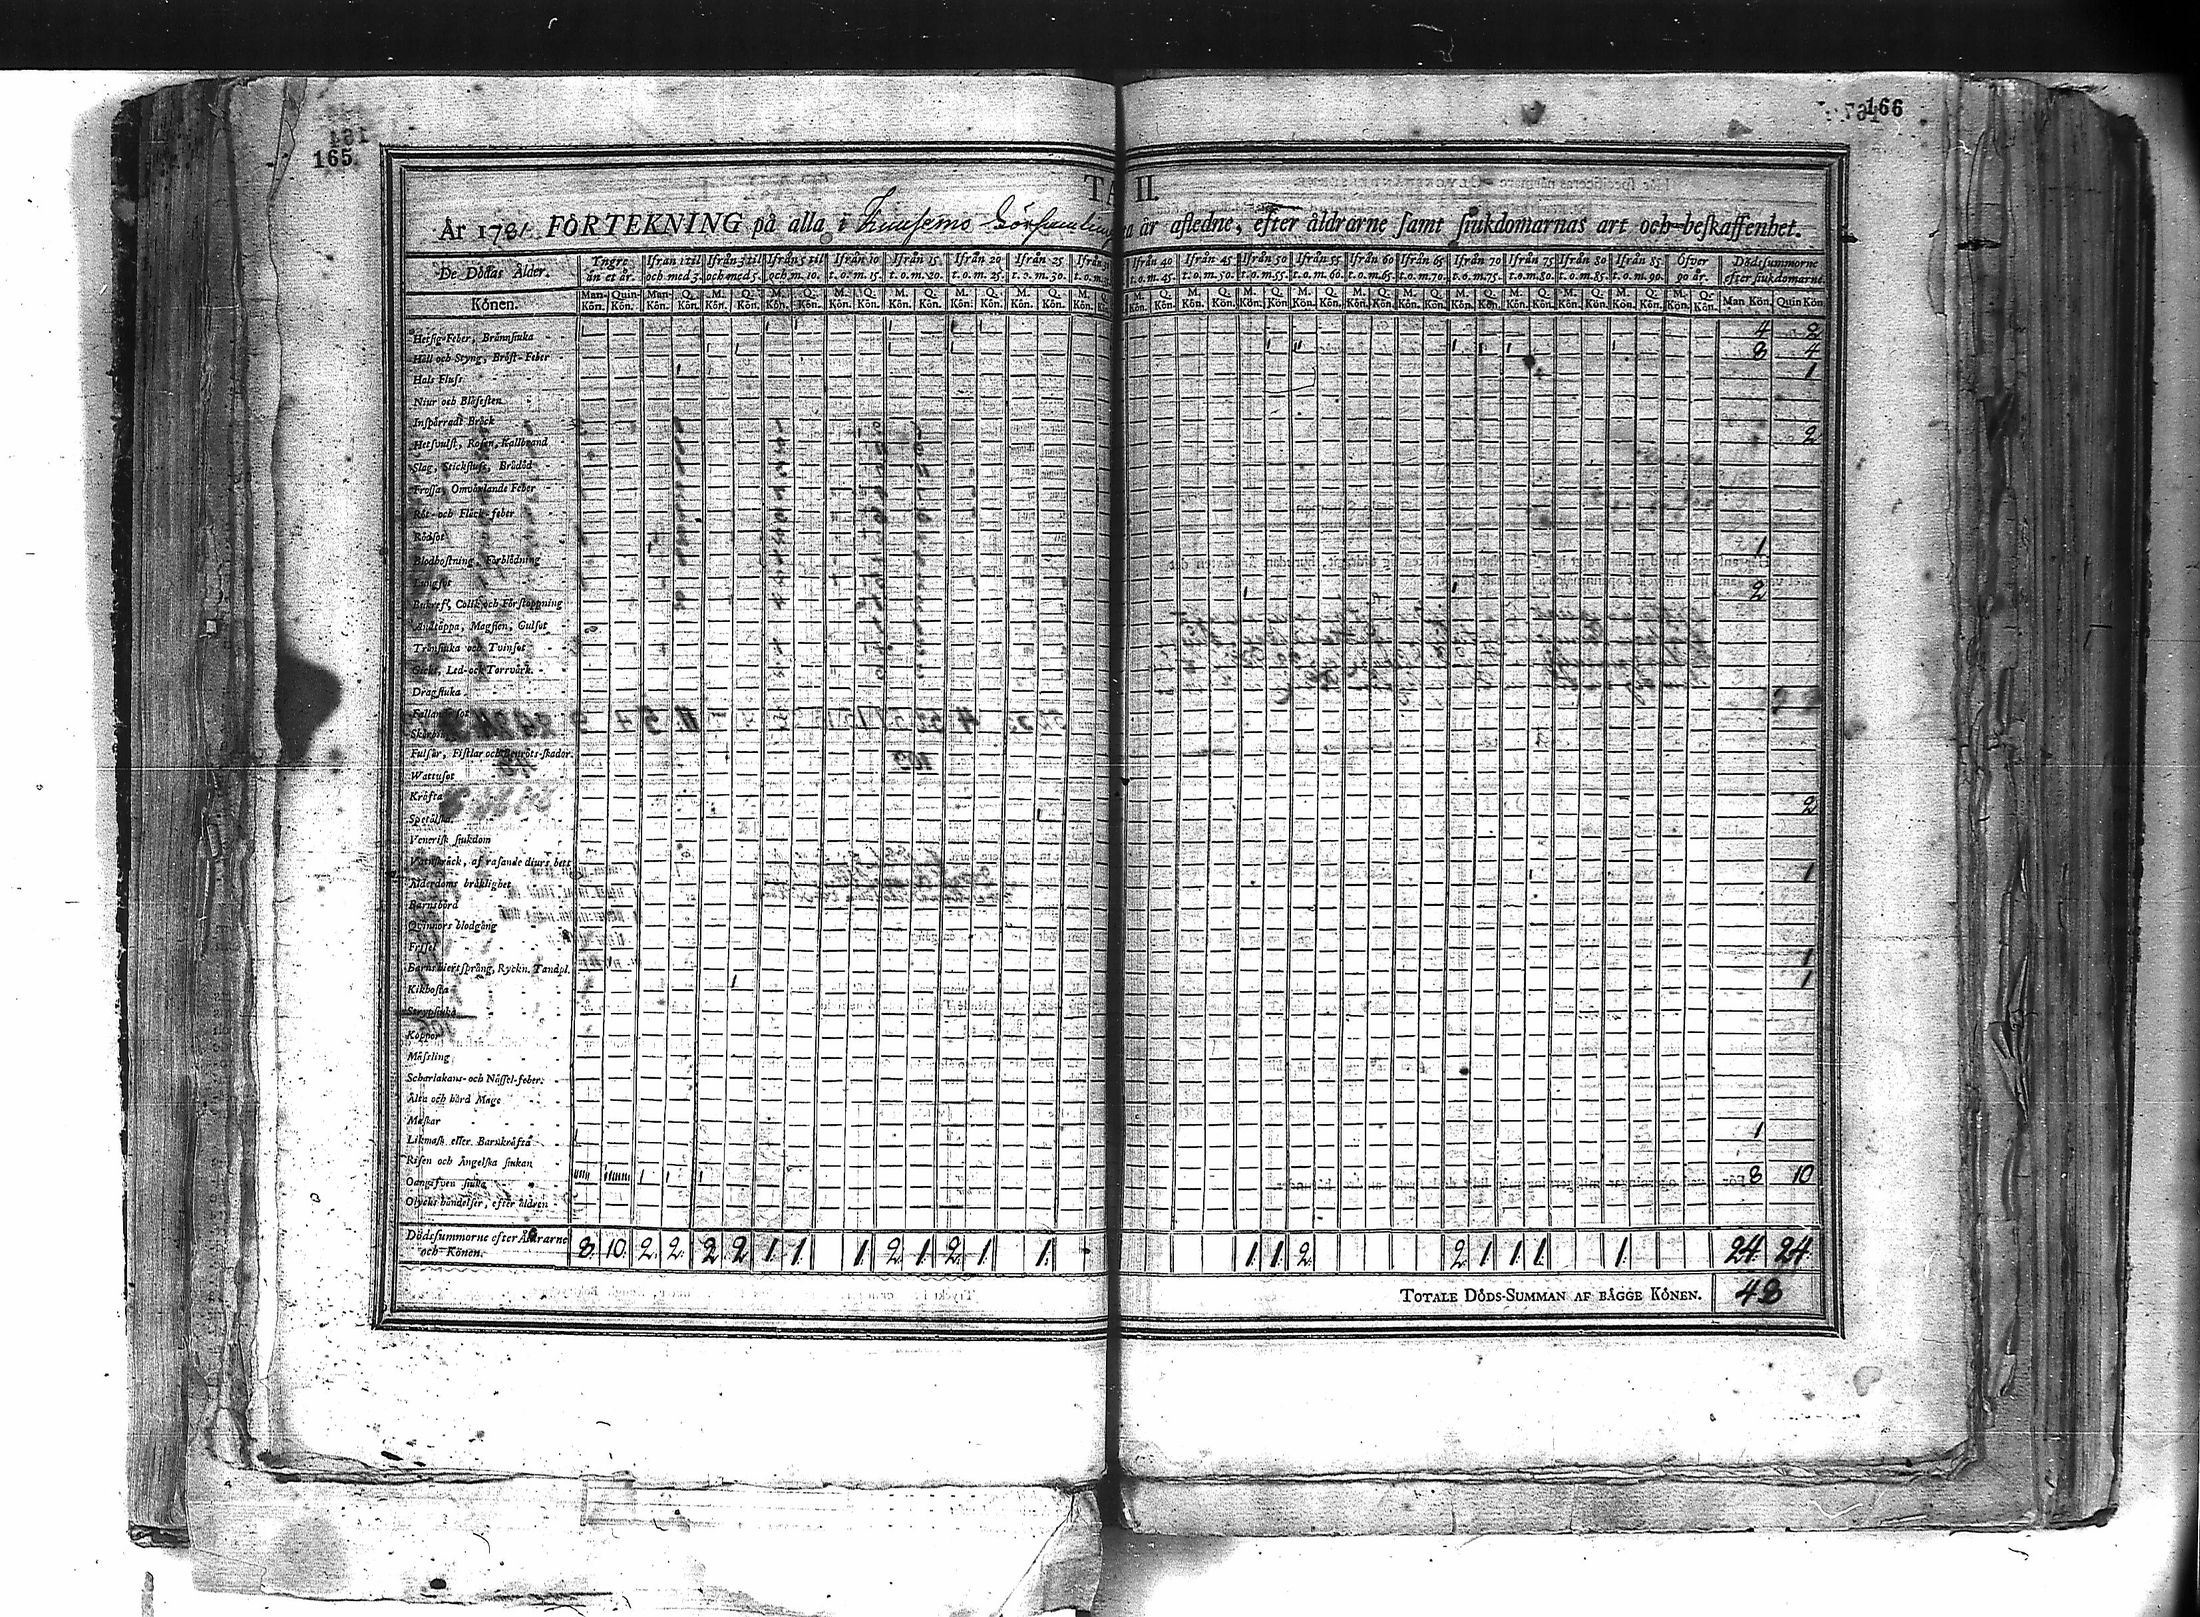 165.
166
TA II.
År 1781. FÖRTEKNING på alla i Kuusemo Församling a år afledne, efter åldrarne samt siukdomarnas art och beskaffenhet.
De Dödas Ålder. Yngre än et år. Ifrån 1 til och med 3. Ifrån 3 til och med 5. Ifrån 5 til och m. 10. Ifrån 10 t. o. m. 15. Ifrån 15 t. o. m. 20. Ifrån 20 t. o. m. 25. Ifrån 25 t. o. m. 30. Ifrån 40 t. o. m. 45. Ifrån 45 t. o. m. 50. Ifrån 50 t. o. m. 55. Ifrån 55 t. o. m. 60. Ifrån 60 t. o. m. 65. Ifrån 65 t. o. m. 70. Ifrån 70 t. o. m. 75. Ifrån 75 t. o. m. 80. Ifrån 80 t. o. m. 85. Ifrån 85 t. o. m. 90. Öfver 90 år. Dödssummorne efter siukdomarne.
Könen. Man-Kön. Quin-Kön. Man-Kön. Q. Kön. M. Kön. Q. Kön. Man Kön. Quin Kön
Hetsig-Feber, Brännsiuka 4 2
Håll och Styng, Bröst-Feber 8 4
Hals Fluss 1
Niur och Blåsesten
Inspärradt Bråck
Hetsvulst, Rosen, Kallbrand 2
Slag, Stickfluss, Brådöd
Frossa, Omväxlande Feber
Röt- och Fläck-feber
Rödsot
Blodhostning, Förblödning 1
Lungsot
Bukref, Colik och Förstoppning 2
Andtäppa, Magsien, Gulsot
Trånsiuka och Tvinsot
Gickt, Led- och Torrvärk
Dragsiuka
Fallandesot
Skörbiugg
Fulsår, Fistlar och Benröts-skador
Wattusot
Kräfta 2
Spetälska
Venerisk siukdom
Vatuskräck, af rasande diurs bett
Ålderdoms bräklighet 1
Barnsbörd
Qvinnors blodgång
Frisel
Barns hiertsprång, Ryckn. Tandpl. 1
Kikhosta 1
Strypsiuka
Koppor
Mässling
Scharlakans- och Nässel-feber
Älta och hård Mage
Maskar
Likmask eller Barnkräfta 1
Risen och Ängelska siukan
Oangifven siuka 8 10
Olycks händelser, efter åldren
Dödssummorne efter Åldrarne och Könen. 8. 10. 2. 2. 2. 2. 1. 1. 1. 2. 1. 2. 1. 1. 1. 1. 2. 2. 1. 1. 1. 1. 24. 24.
TOTALE DÖDS-SUMMAN AF BÄGGE KÖNEN. 48